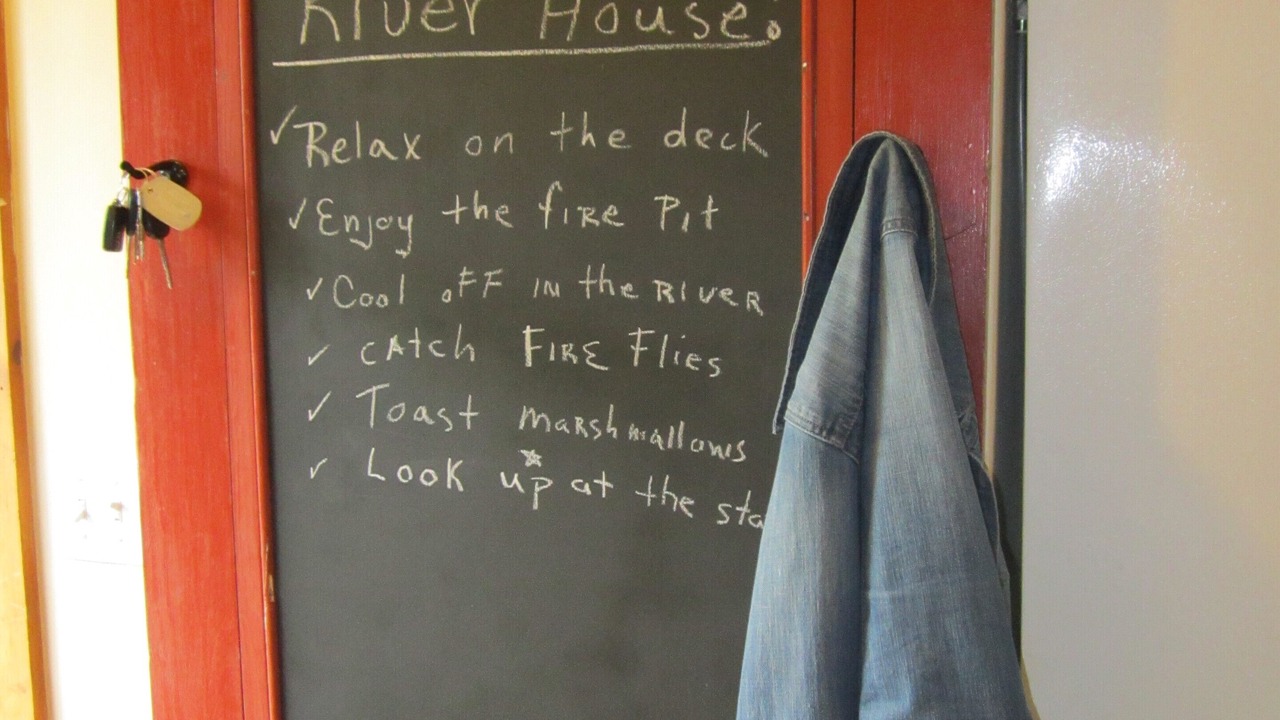 River House:
✓ Relax on the deck
✓ Enjoy the fIRe Pit
✓ Cool oFF IN the RIVeR
✓ CAtch FIRE Flies
✓ Toast maRshmallows
✓ Look up at the sta